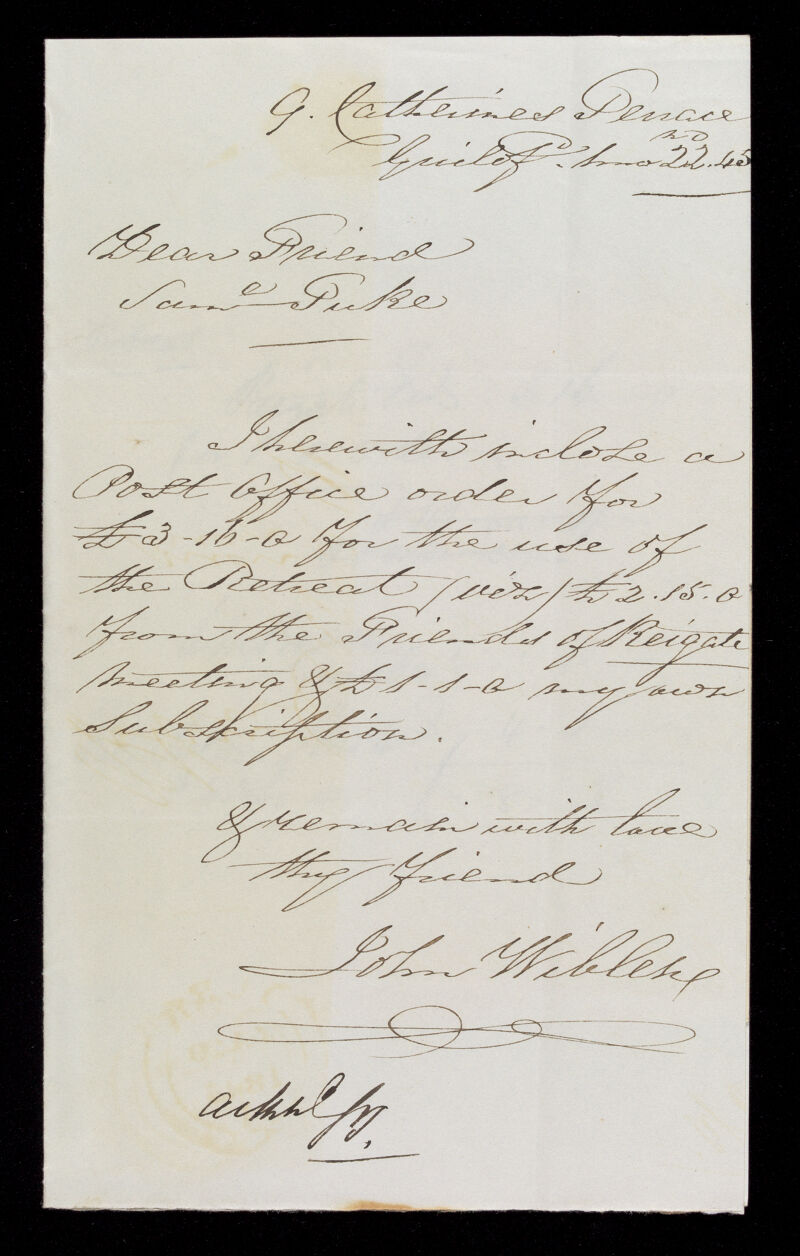 9. Catherines Terrace
Guilfd. 1mo 22nd. 45
Dear Friend
Saml Tuke
I herewith inclose a
Post Office order for
£3-16-0 for the use of
the Retreat (vizn) £2.15.0
from the Friends of Reigate
meeting & £1-1-0 my own
Subscription.
& remain with love
thy friend
John
ackkd